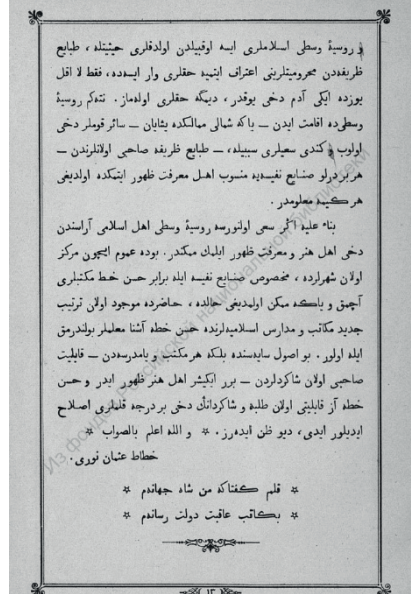 و روسیهٔ وسطی اسلاملری ایسه اوقبیلدن اولدقلری حیثیتله ، طبایع
ظریفه‌دن محرومیتلرینی اعتراف ایتمیه حقلری وار ایسه‌ده ، فقط لا اقل
یوزده ایکی آدم دخی یوقدر ، دیمگه حقلری اوله‌ماز . نته‌کم روسیهٔ
وسطی‌ده اقامت ایدن — یا که شمالی ممالکده یشایان — سائر قوملر دخی
اولوب و کندی سعیلری سبیله ، — طبایع ظریفه صاحبی اولانلرندن —
هر بر درلو صنایع نفیسه‌یه منسوب اهل معرفت ظهور ایتمکده اولدیغی
هر کیمه معلومدر .
بناء علیه اگر سعی اولنورسه روسیهٔ وسطی اهل اسلامی آراسندن
دخی اهل هنر و معرفت ظهور ایلمك ممکندر . بوده عموم ایچون مرکز
اولان شهرلرده ، مخصوص صنایع نفیسه ایله برابر حسن خط مکتبلری
آچمق و یاخود ممکن اولمدیغی حالده ، حاضرده موجود اولان ترتیب
جدید مکاتب و مدارس اسلامیه‌لرنده حسن خطه آشنا معلملر بولندرمق
ایله اولور . بو اصول سایه‌سنده بلکه هر مکتب و یا مدرسه‌دن — قابلیت
صاحبی اولان شاکردلردن — برر ایکیشر اهل هنر ظهور ایدر و حسن
خطه آز قابلیتی اولان طلبه و شاکردانك دخی بر درجه قلملری اصلاح
ایدیلور ایدی ، دیو ظن ایده‌رز . * و الله اعلم بالصواب *
خطاط عثمان نوری .
* قلم کفتا که من شاه جهانم *
* بکاتب عاقبت دولت رسانم *
١٣
Из фондов Российской национальной библиотеки